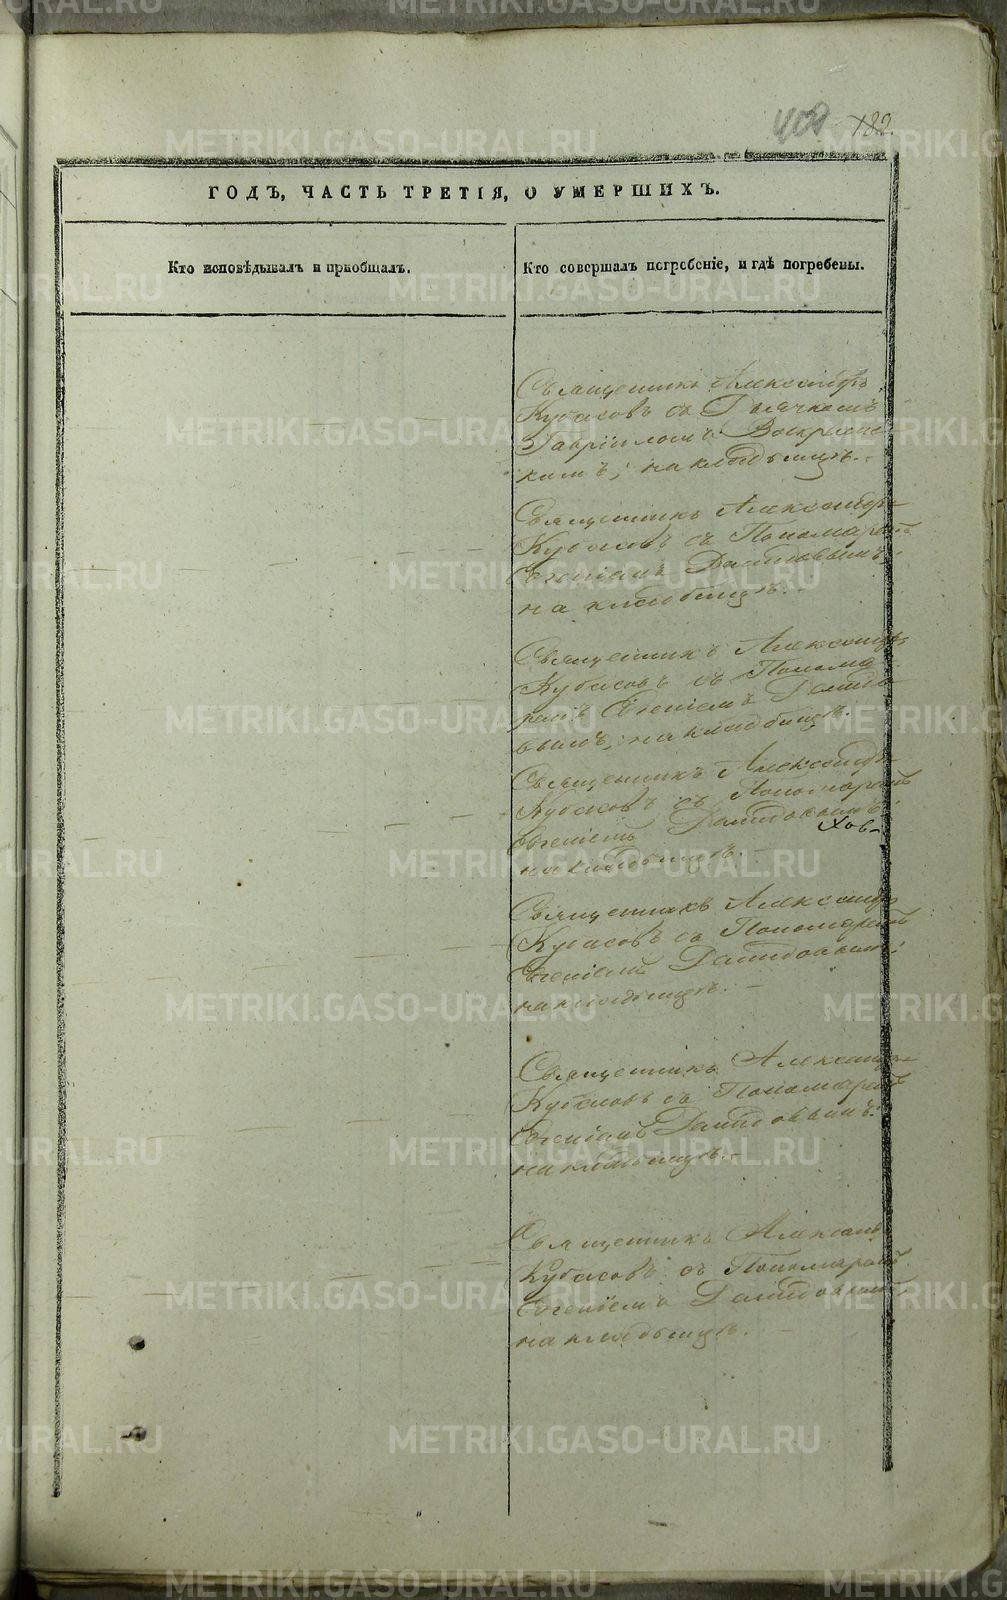 METRIKI.GASO-URAL.RU
182.
ГОДЪ, ЧАСТЬ ТРЕТІЯ, О УМЕРШИХЪ.
Кто исповѣдывалъ и пріобщалъ.
Кто совершалъ погребеніе, и гдѣ погребены.
Священникъ Александръ
Кубасовъ съ Дьячкомъ
Гавріиломъ Воскресенс-
кимъ, на кладбищѣ.
Священникъ Александръ
Кубасовъ съ Пономаремъ
Евгеніемъ
на кладбищѣ.
Священникъ Александръ
Кубасовъ съ Понома
ремъ Евгеніемъ
вымъ, на кладбищѣ.
Священникъ Александръ
Кубасовъ съ Пономаремъ
Евгеніемъ
на кладбищѣ.
Священникъ Александръ
Кубасовъ съ Пономаремъ
Евгеніемъ
на кладбищѣ.
Священникъ Александръ
Кубасовъ съ Пономаремъ
Евгеніемъ
на кладбищѣ.
Священникъ Александръ
Кубасовъ съ Пономаремъ
Евгеніемъ
на кладбищѣ.